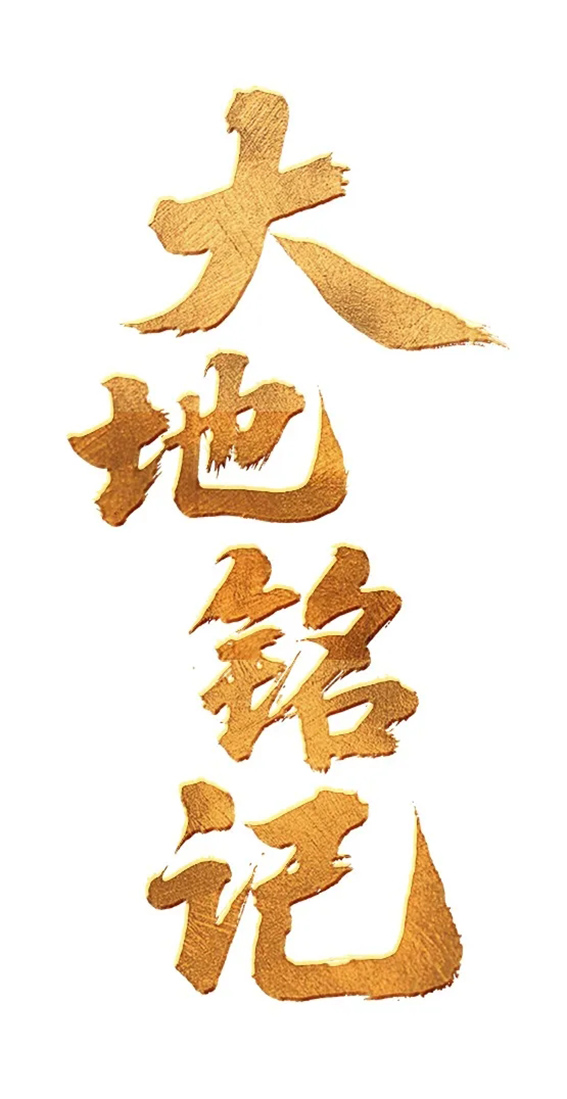 大地铭记